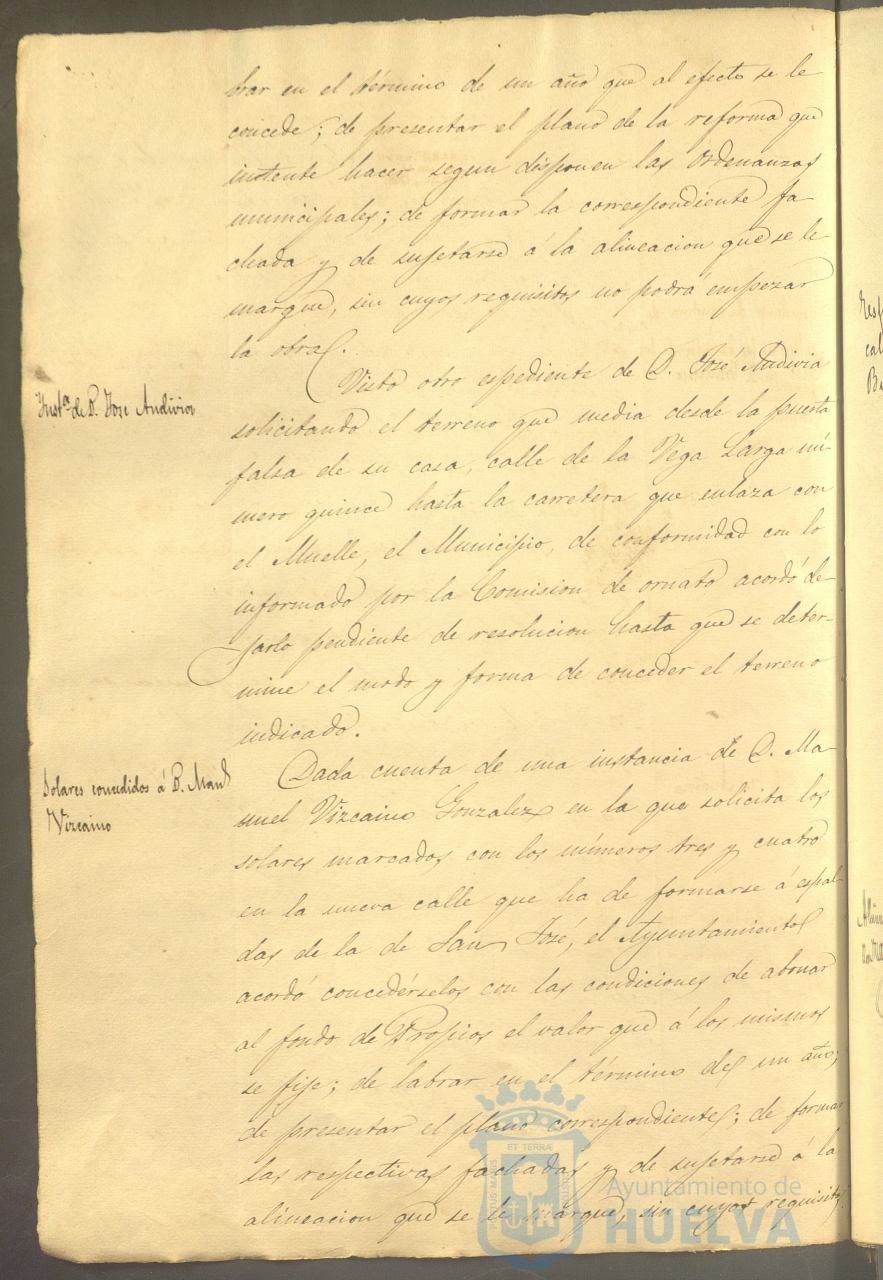 brar en el término de un año que al efecto se le
concede; de presentar el plano de la reforma que
intente hacer segun disponen las Ordenanzas
municipales; de formar la correspondiente fa-
chada y de sujetarse á la alineacion que se le
marque, sin cuyos requisitos no podrá empezar
la obra.
Inst.ª de D. Jose Andivia
Visto otro espediente de D. José Andivia
solicitando el terreno que media desde la puerta
falsa de su casa, calle de la Vega Larga nú-
mero quince hasta la carretera que enlaza con
el Muelle, el Municipio, de conformidad con lo
informado por la Comision de ornato acordó de-
jarlo pendiente de resolucion hasta que se deter-
mine el modo y forma de conceder el terreno
indicado.
Solares concedidos á D. Manl
Vizcaino
Dada cuenta de una instancia de D. Ma-
nuel Vizcaino Gonzalez en la que solicita los
solares marcados con los números tres y cuatro
en la nueva calle que ha de formarse á espal-
das de la de San José, el Ayuntamiento
acordó concedérselos con las condiciones de abonar
al fondo de Propios el valor que á los mismos
se fije; de labrar en el término de un año;
de presentar el plano correspondiente; de formar
las respectivas fachadas y de sujetarse á la
alineacion que se le marque, sin cuyos requisitos
ET TERRÆ
Ayuntamiento de
HUELVA